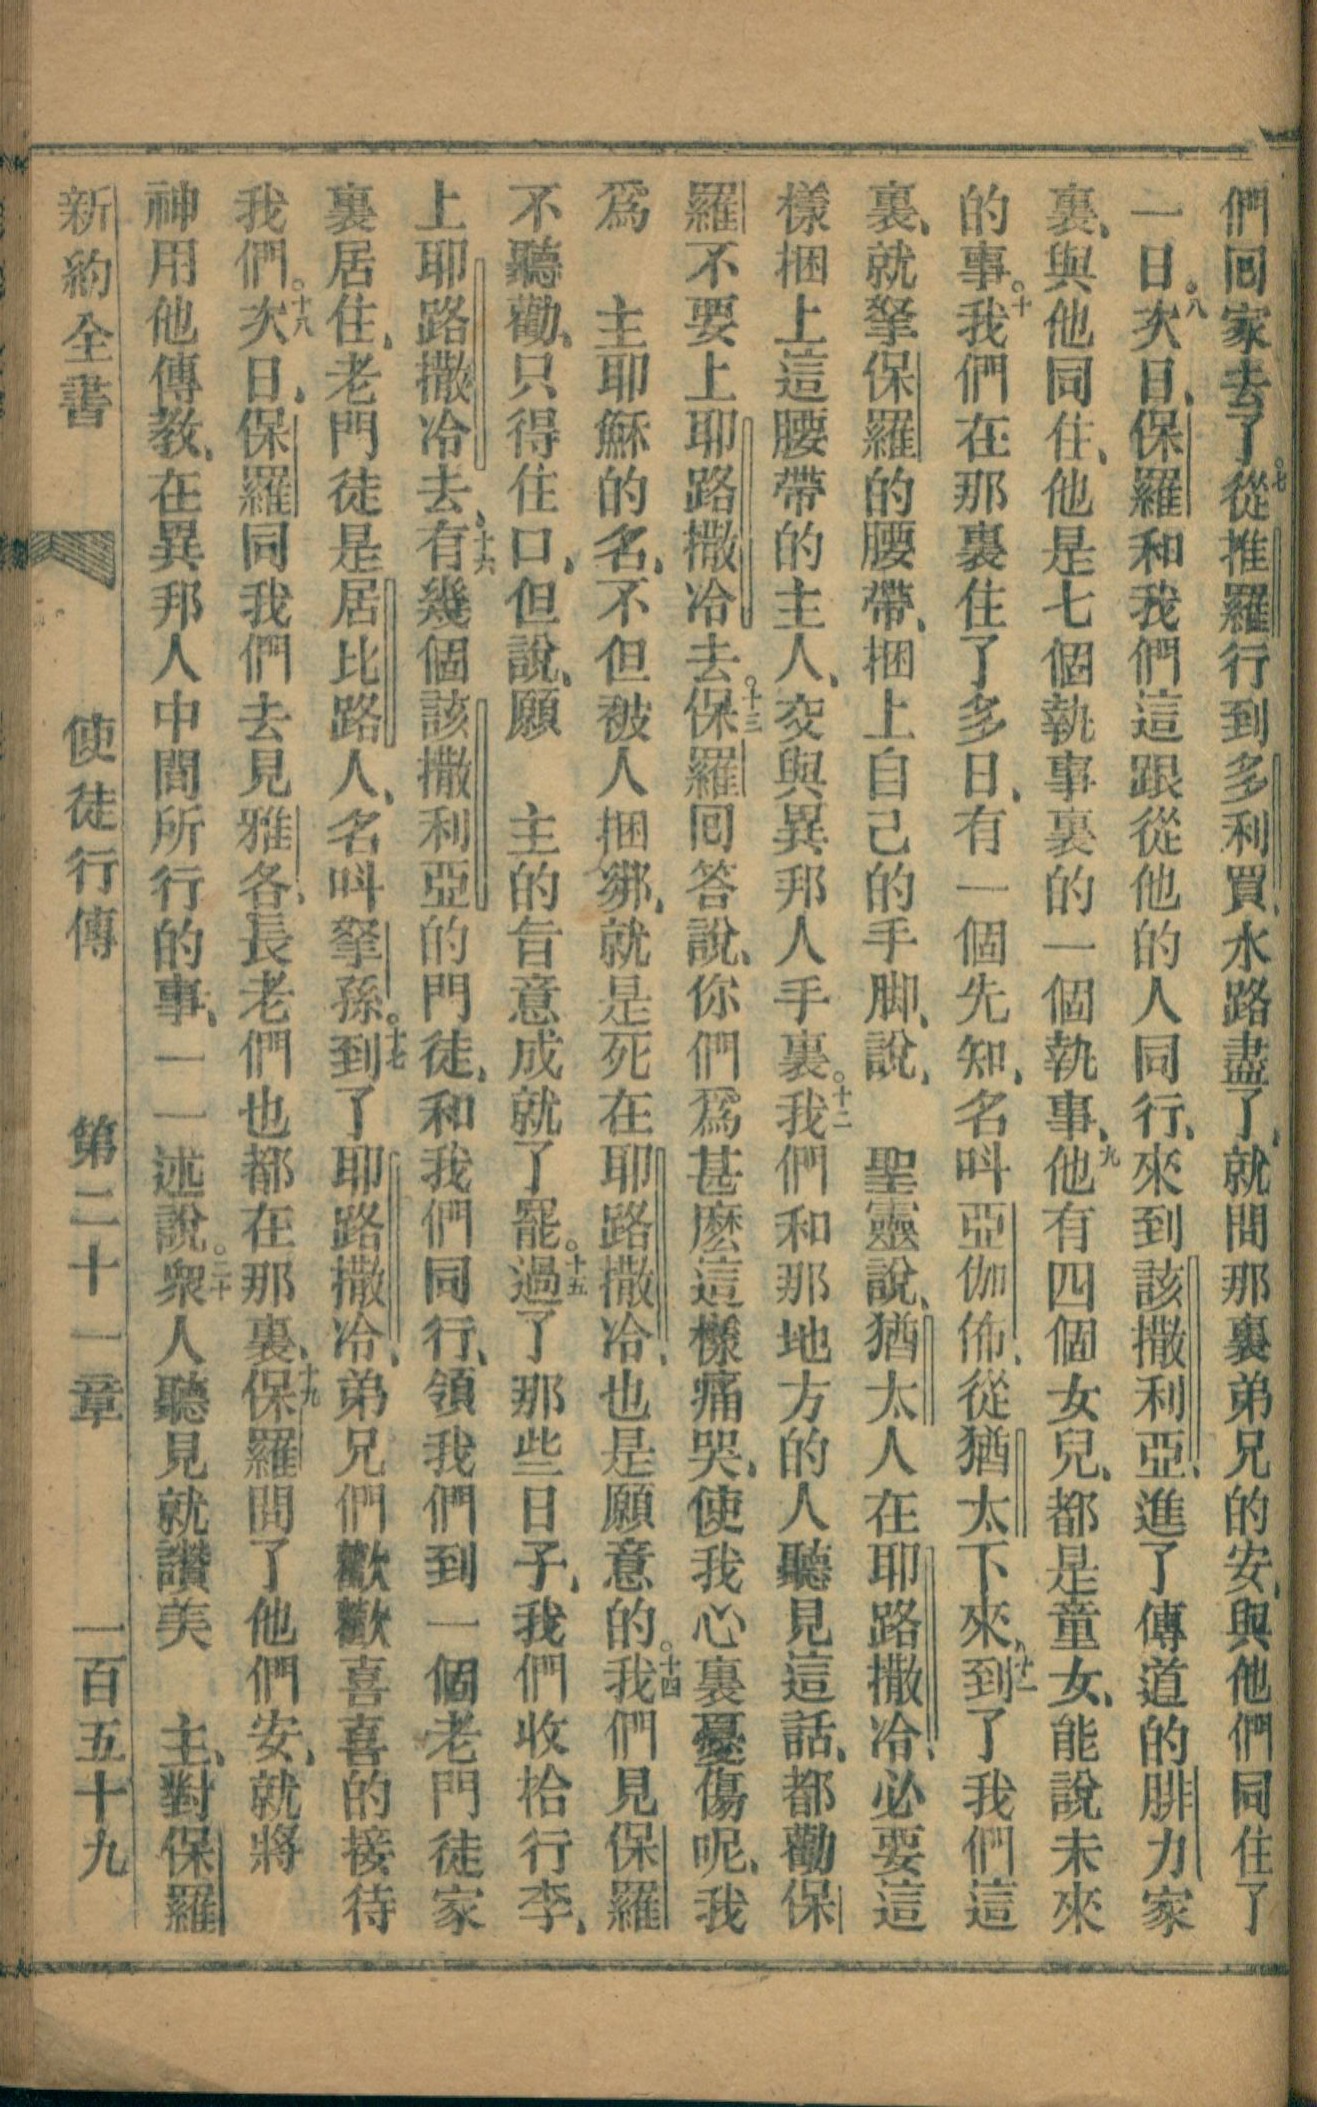 們回家去了。七從推羅行到多利買、水路盡了、就問那裏弟兄的安、與他們同住了
一日。八次日、保羅和我們這跟從他的人同行、來到該撒利亞、進了傳道的腓力家
裏、與他同住、他是七個執事裏的一個執事、九他有四個女兒、都是童女、能說未來
的事。十我們在那裏住了多日、有一個先知、名呌亞伽佈、從猶太下來、十一到了我們這
裏、就拏保羅的腰帶、捆上自己的手脚、說、 聖靈說、猶太人在耶路撒冷、必要這
樣捆上這腰帶的主人、交與異邦人手裏。十二我們和那地方的人聽見這話、都勸保
羅不要上耶路撒冷去。十三保羅回答說、你們爲甚麽這樣痛哭、使我心裏憂傷呢、我
爲 主耶穌的名、不但被人捆綁、就是死在耶路撒冷、也是願意的。十四我們見保羅
不聽勸、只得住口、但說、願 主的旨意成就了罷。十五過了那些日子、我們收拾行李、
上耶路撒冷去、十六有幾個該撒利亞的門徒、和我們同行、領我們到一個老門徒家
裏居住、老門徒是居比路人、名呌拏孫。十七到了耶路撒冷、弟兄們歡歡喜喜的接待
我們。十八次日、保羅同我們去見雅各、長老們也都在那裏、十九保羅問了他們安、就將
神用他傳教、在異邦人中間所行的事、一一述說。二十衆人聽見就讃美 主、對保羅
新約全書 使徒行傳 第二十一章 一百五十九